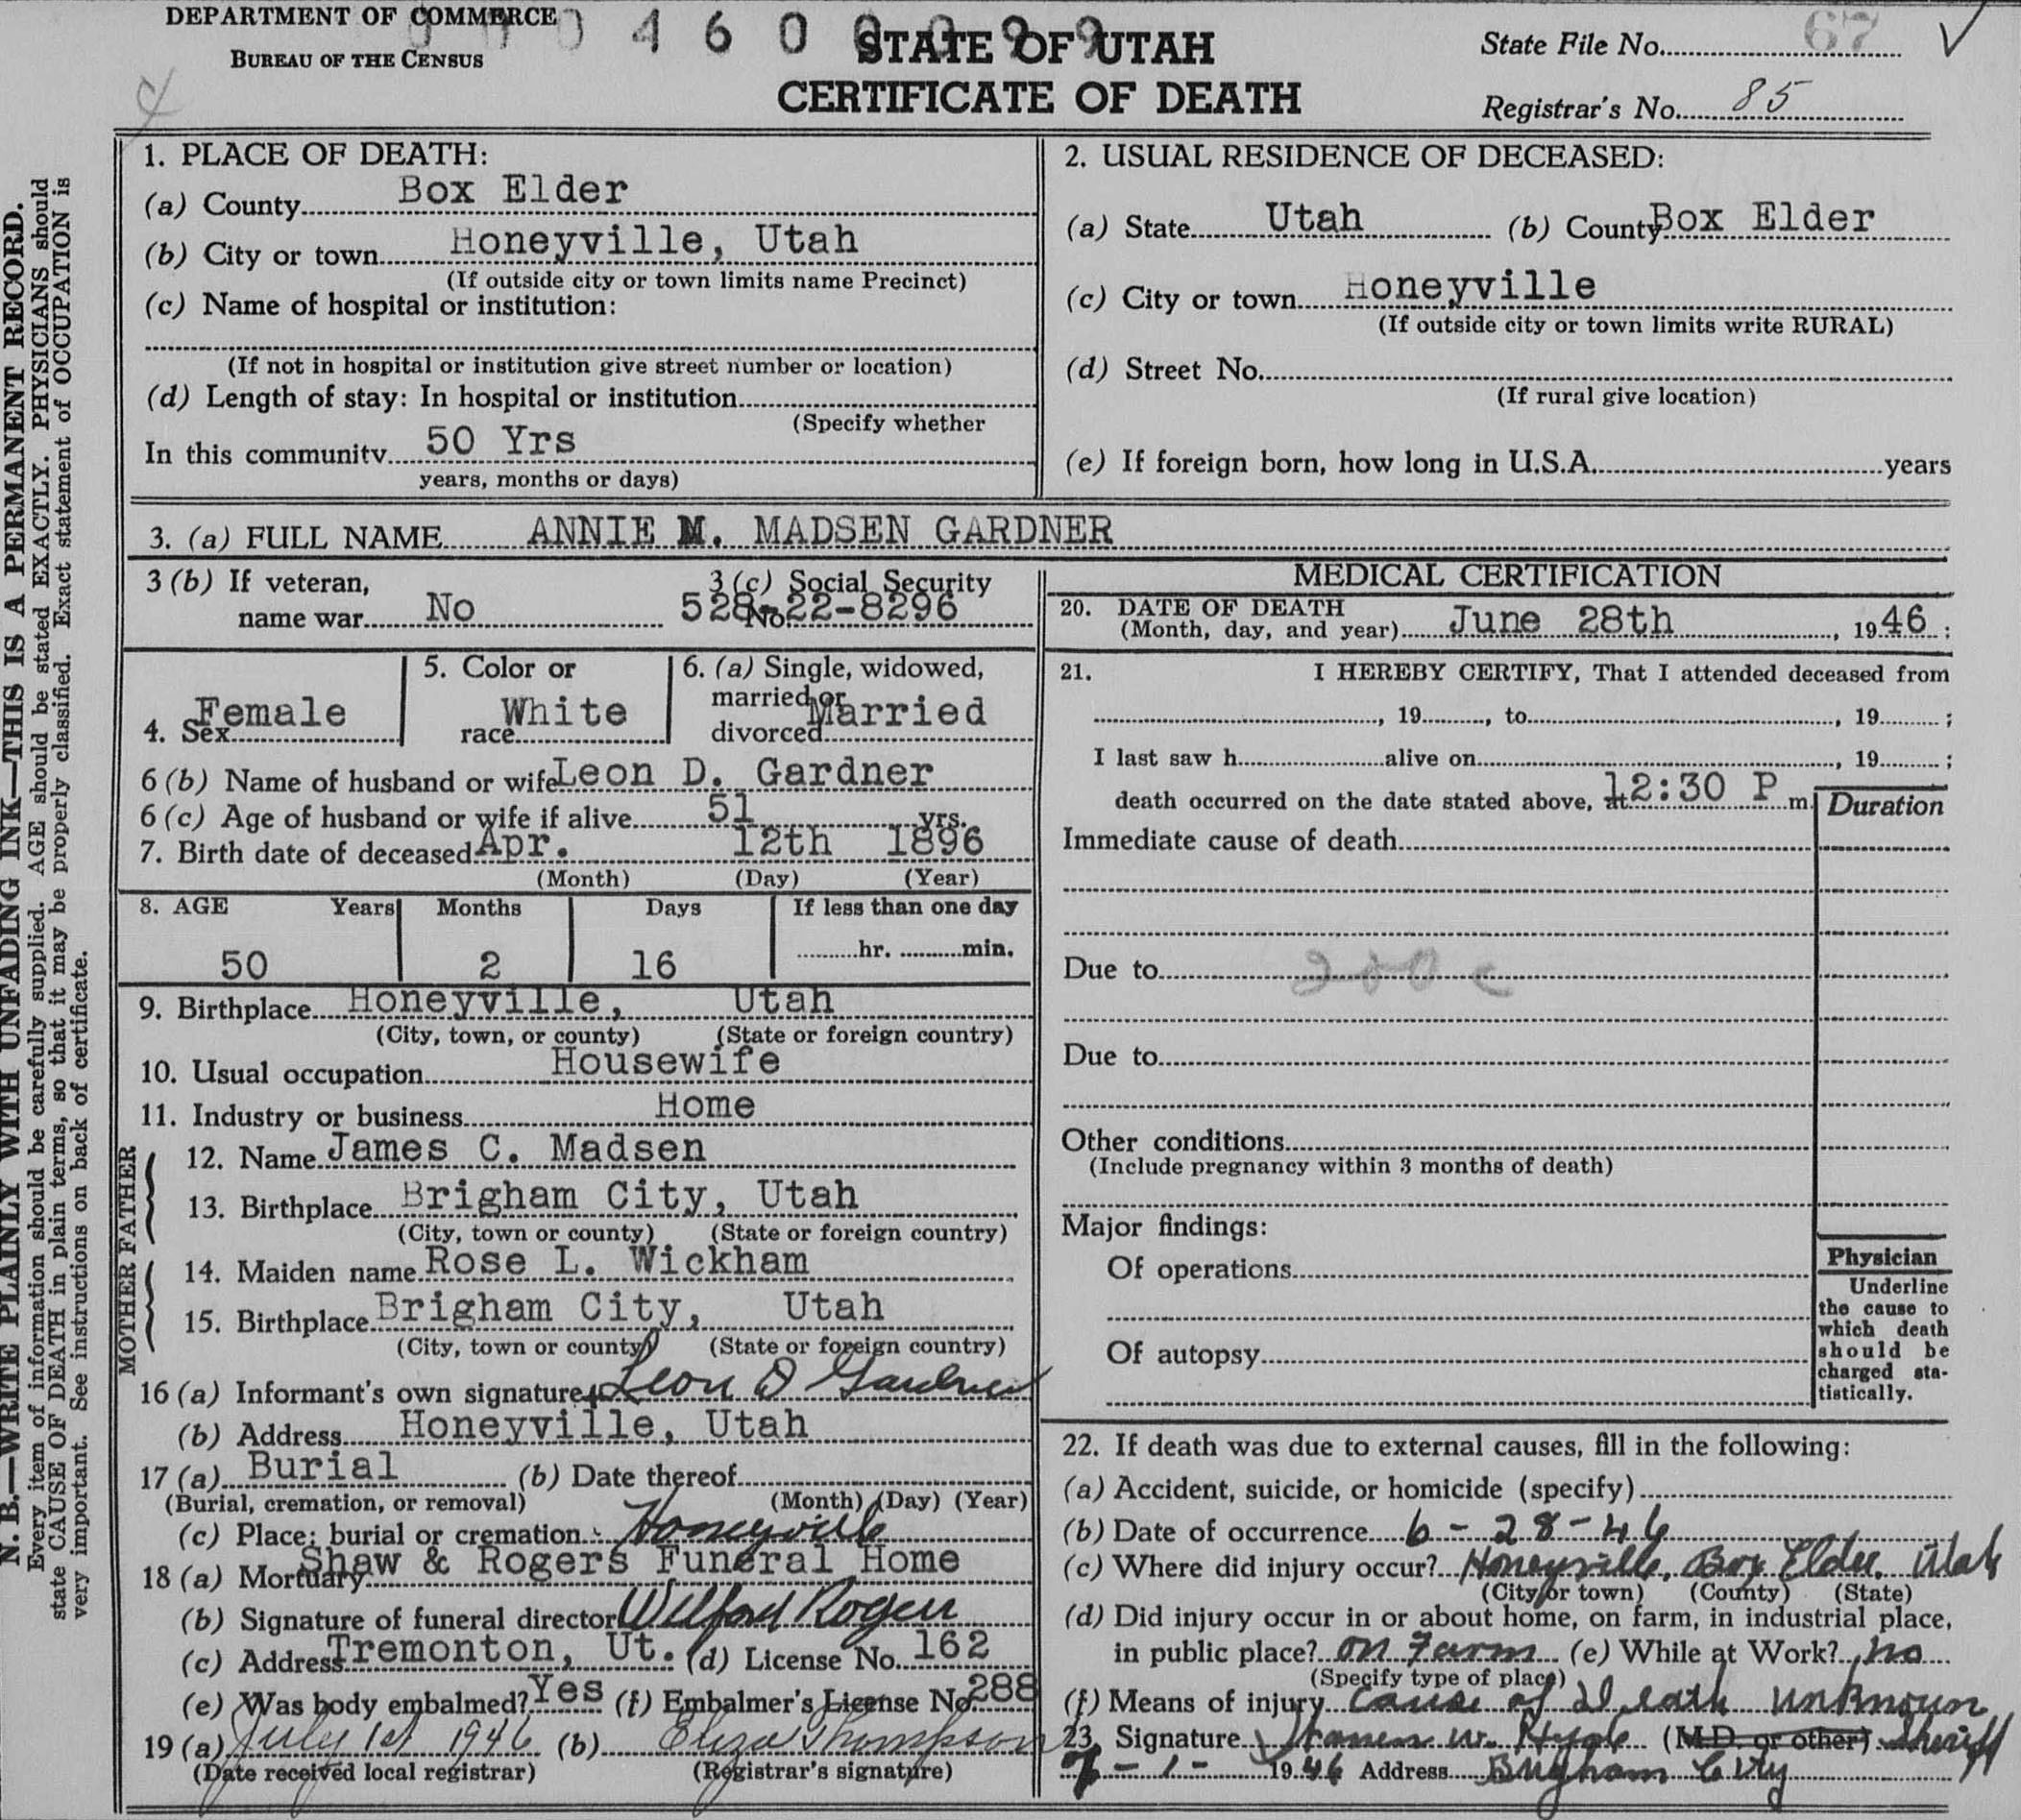 DEPARTMENT OF COMMERCE
BUREAU OF THE CENSUS
STATE OF UTAH
CERTIFICATE OF DEATH
State File No. 67
Registrar's No. 85
N. B.—WRITE PLAINLY WITH UNFADING INK—THIS IS A PERMANENT RECORD.
Every item of information should be carefully supplied. AGE should be stated EXACTLY. PHYSICIANS should
state CAUSE OF DEATH in plain terms, so that it may be properly classified. Exact statement of OCCUPATION is
very important. See instructions on back of certificate.
1. PLACE OF DEATH:
(a) County Box Elder
(b) City or town Honeyville, Utah
(If outside city or town limits name Precinct)
(c) Name of hospital or institution:
(If not in hospital or institution give street number or location)
(d) Length of stay: In hospital or institution
(Specify whether
In this community 50 Yrs
years, months or days)
2. USUAL RESIDENCE OF DECEASED:
(a) State Utah (b) County Box Elder
(c) City or town Honeyville
(If outside city or town limits write RURAL)
(d) Street No.
(If rural give location)
(e) If foreign born, how long in U.S.A. years
3. (a) FULL NAME ANNIE M. MADSEN GARDNER
3 (b) If veteran,
name war No
3 (c) Social Security
No. 528-22-8296
4. Sex Female
5. Color or
race White
6. (a) Single, widowed,
married or
divorced Married
6 (b) Name of husband or wife Leon D. Gardner
6 (c) Age of husband or wife if alive 51 yrs.
7. Birth date of deceased Apr. 12th 1896
(Month) (Day) (Year)
8. AGE Years Months Days If less than one day
50 2 16 hr. min.
9. Birthplace Honeyville, Utah
(City, town, or county) (State or foreign country)
10. Usual occupation Housewife
11. Industry or business Home
FATHER
12. Name James C. Madsen
13. Birthplace Brigham City, Utah
(City, town or county) (State or foreign country)
MOTHER
14. Maiden name Rose L. Wickham
15. Birthplace Brigham City, Utah
(City, town or county) (State or foreign country)
16 (a) Informant's own signature Leon D Gardner
(b) Address Honeyville, Utah
17 (a) Burial (b) Date thereof
(Burial, cremation, or removal) (Month) (Day) (Year)
(c) Place; burial or cremation Honeyville
18 (a) Mortuary Shaw & Rogers Funeral Home
(b) Signature of funeral director Wilford Rogers
(c) Address Tremonton, Ut. (d) License No. 162
(e) Was body embalmed? Yes (f) Embalmer's License No. 288
19 (a) July 1st 1946 (b) Eliza Thompson
(Date received local registrar) (Registrar's signature)
MEDICAL CERTIFICATION
20. DATE OF DEATH
(Month, day, and year) June 28th, 1946;
21. I HEREBY CERTIFY, That I attended deceased from
, 19 , to , 19 ;
I last saw h alive on , 19 ;
death occurred on the date stated above, at 12:30 P m.
Duration
Immediate cause of death
Due to 200 c
Due to
Other conditions
(Include pregnancy within 3 months of death)
Major findings:
Of operations
Of autopsy
Physician
Underline
the cause to
which death
should be
charged sta-
tistically.
22. If death was due to external causes, fill in the following:
(a) Accident, suicide, or homicide (specify)
(b) Date of occurrence 6-28-46
(c) Where did injury occur? Honeyville, Box Elder, Utah
(City or town) (County) (State)
(d) Did injury occur in or about home, on farm, in industrial place,
in public place? on Farm (e) While at Work? no
(Specify type of place)
(f) Means of injury cause of Death unknown
23. Signature Warren W. Hyde (M.D. or other) Sheriff
7-1-1946 Address Brigham City